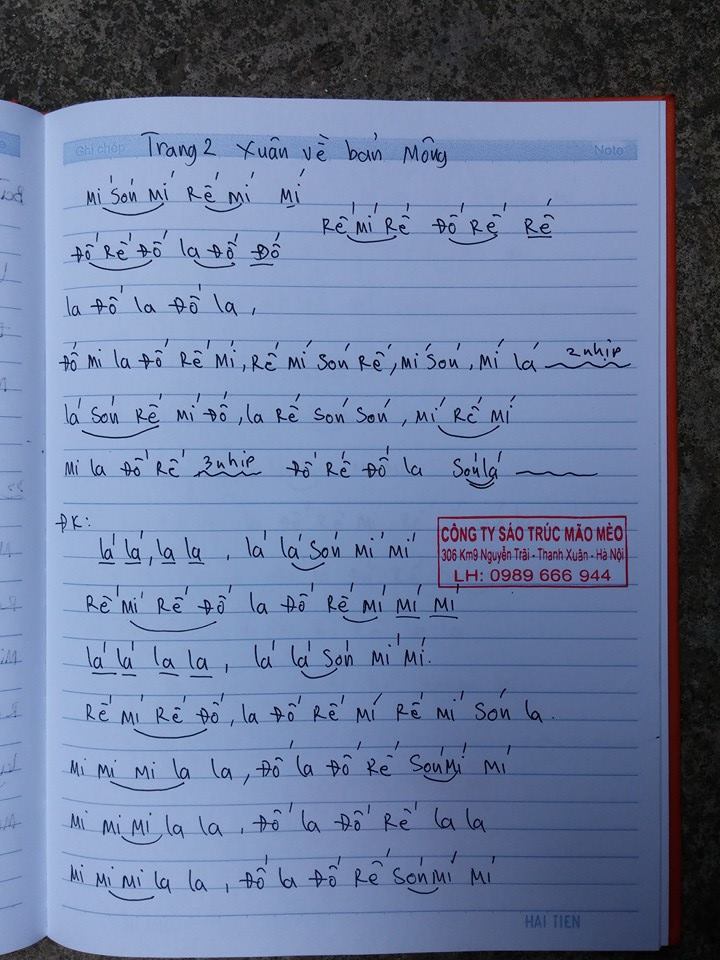 Ghi chép Trang 2 Xuân về bản Mông Note
Mí Són Mí Rế Mí Mí
Rế Mí Rế Đố Rế Rế
Đố Rế Đố la Đố Đố
la Đố la Đố la,
Đố Mi la Đố Rế Mí, Rế Mí Són Rế, Mí Són, Mí lá 2 nhịp
lá Són Rế Mí Đố, la Rế Són Són, Mí Rế Mí
Mi la Đố Rế 3 nhịp Đố Rế Đố la Són lá
ĐK:
lá lá, la la, lá lá Són Mí Mí
CÔNG TY SÁO TRÚC MÃO MÈO
306 Km9 Nguyễn Trãi - Thanh Xuân - Hà Nội
LH: 0989 666 944
Rế Mí Rế Đố la Đố Rế Mí Mí Mí
lá lá la la, lá lá Són Mí Mí.
Rế Mí Rế Đố, la Đố Rế Mí Rế Mí Són la.
Mi Mi Mi la la, Đố la Đố Rế Són Mí Mí
Mi Mi Mi la la, Đố la Đố Rế la la
Mi Mi Mi la la, Đố la Đố Rế Són Mí Mí
HẢI TIẾN